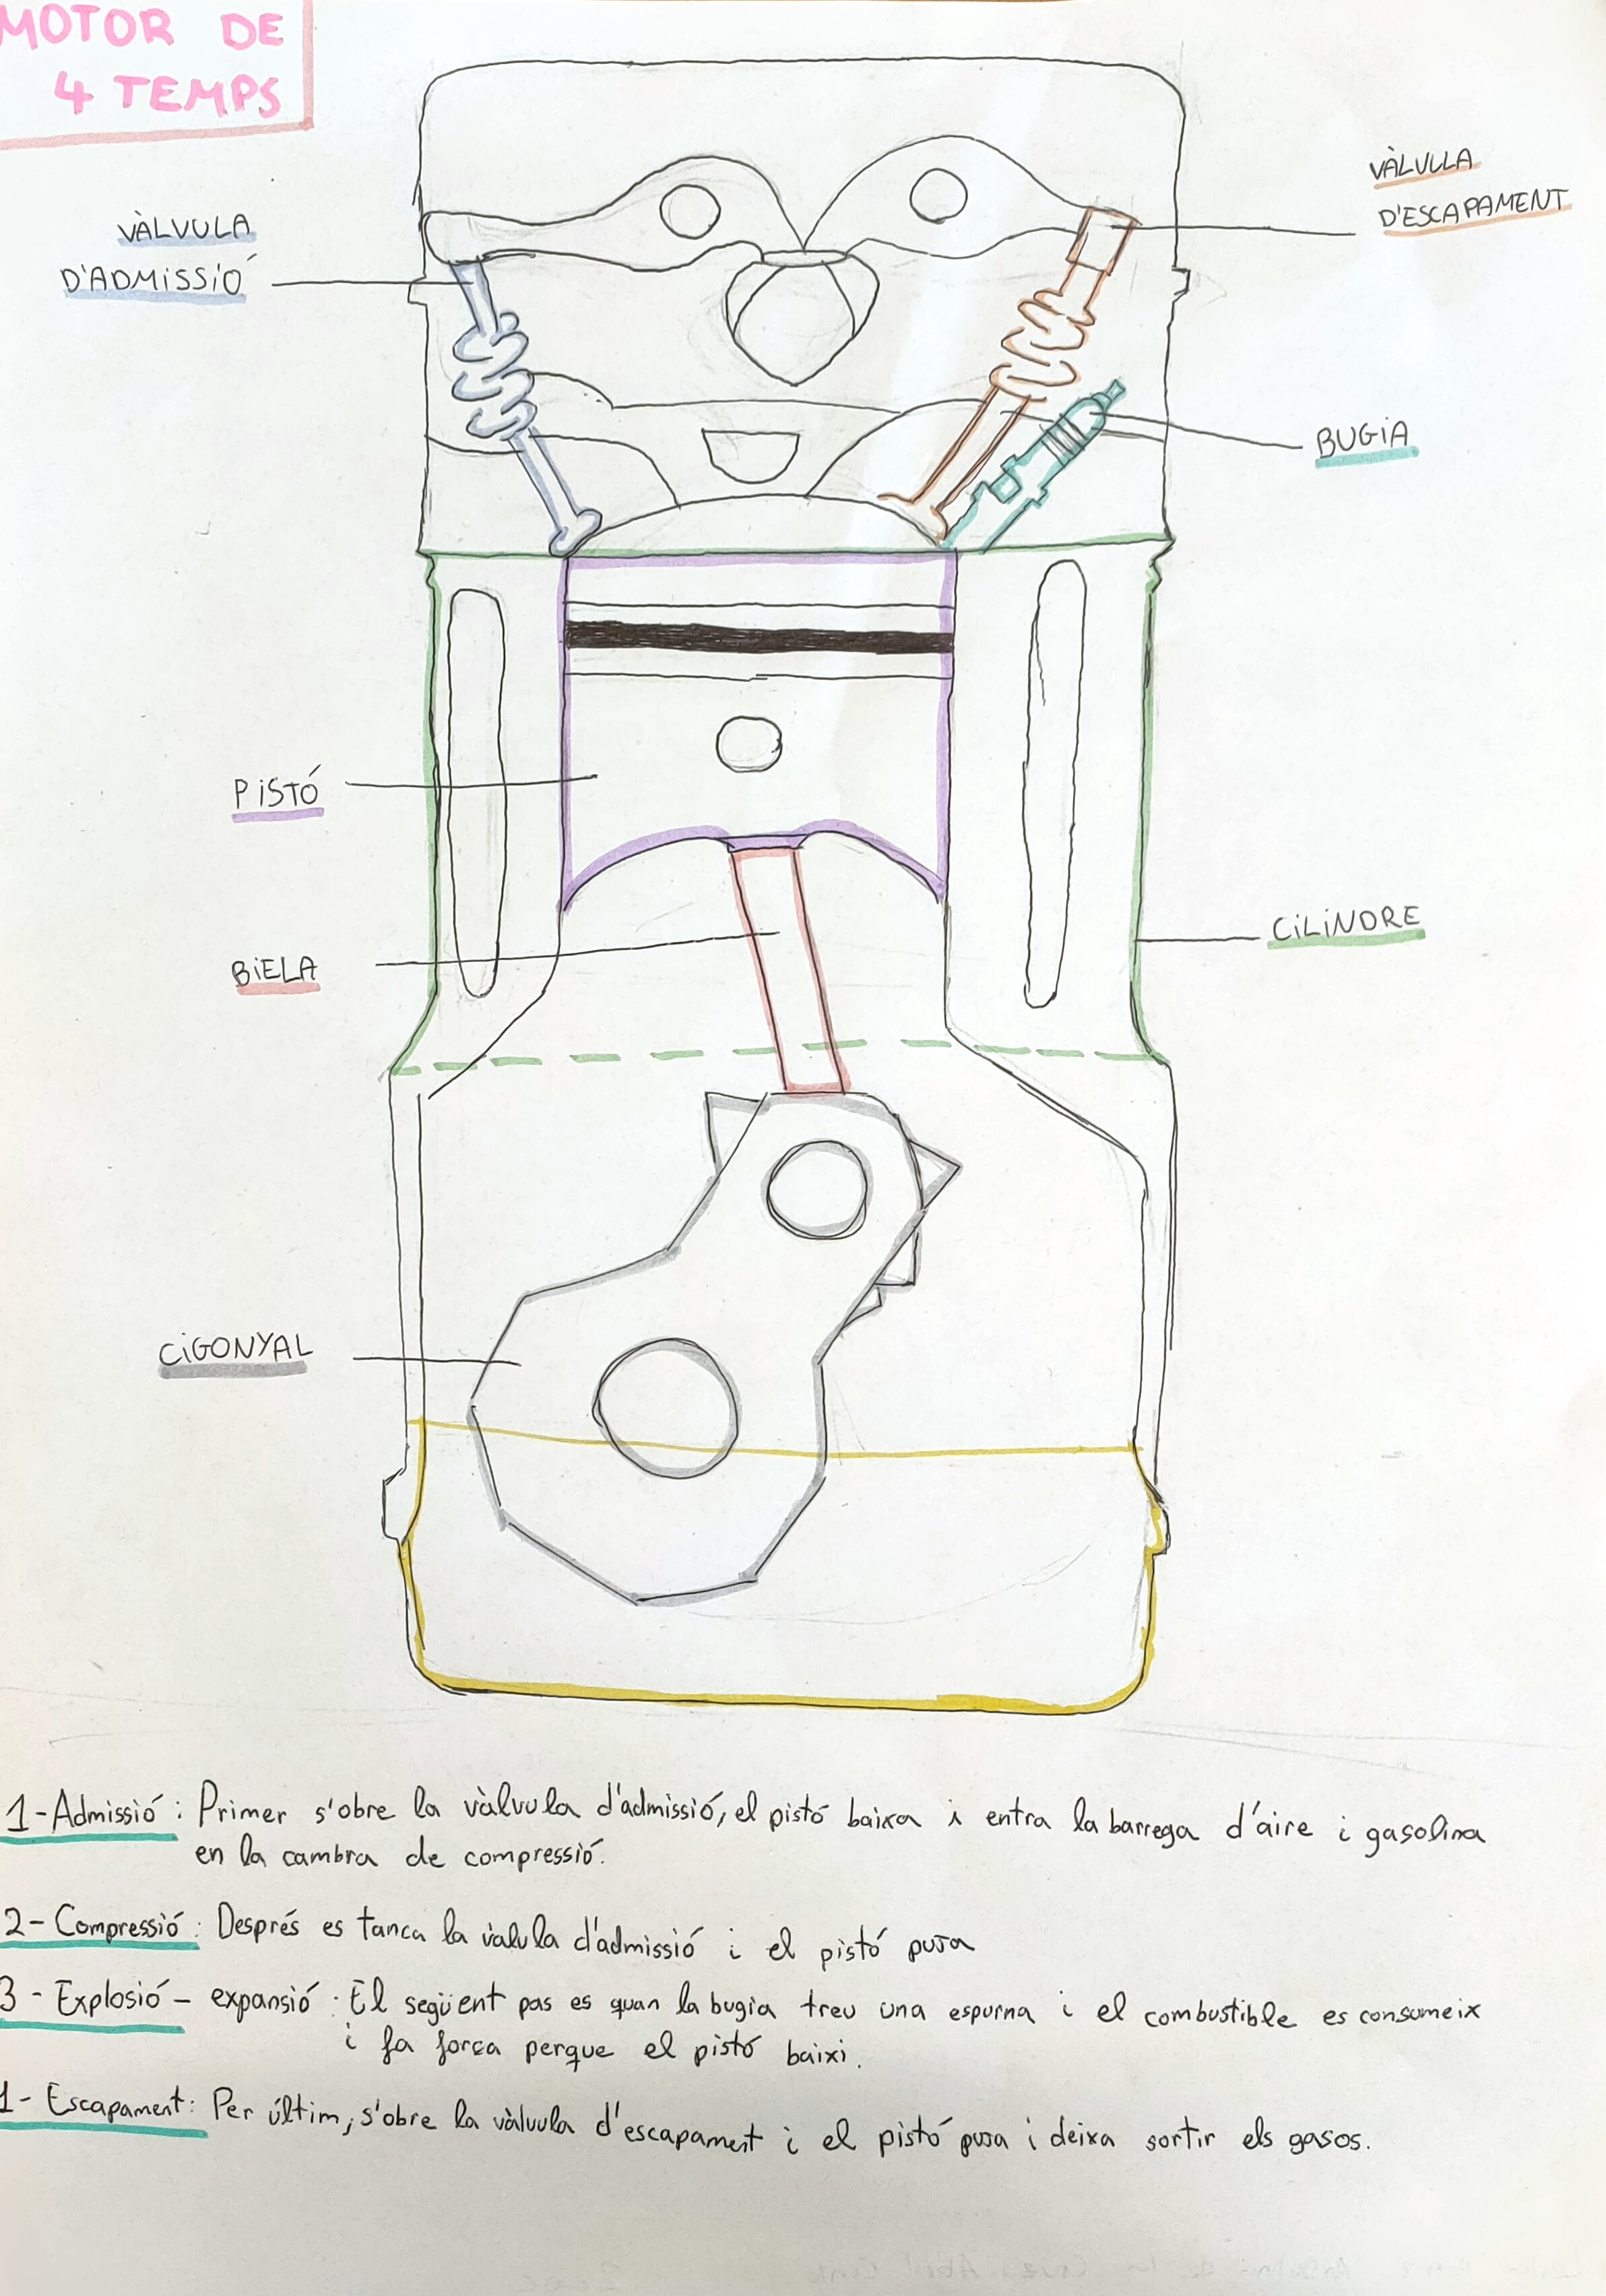 MOTOR DE
4 TEMPS
VÀLVULA
D'ADMISSIÓ
VÀLVULA
D'ESCAPAMENT
BUGIA
PISTÓ
CILINDRE
BIELA
CIGONYAL
1-Admissió: Primer s'obre la vàlvula d'admissió, el pistó baixa i entra la barrega d'aire i gasolina
en la cambra de compressió.
2- Compressió: Després es tanca la vàlula d'admissió i el pistó puja
3 - Explosió - expansió: El següent pas es quan la bugia treu una espurna i el combustible es consumeix
i fa força perque el pistó baixi.
1- Escapament: Per últim, s'obre la vàlvula d'escapament i el pistó puja i deixa sortir els gasos.